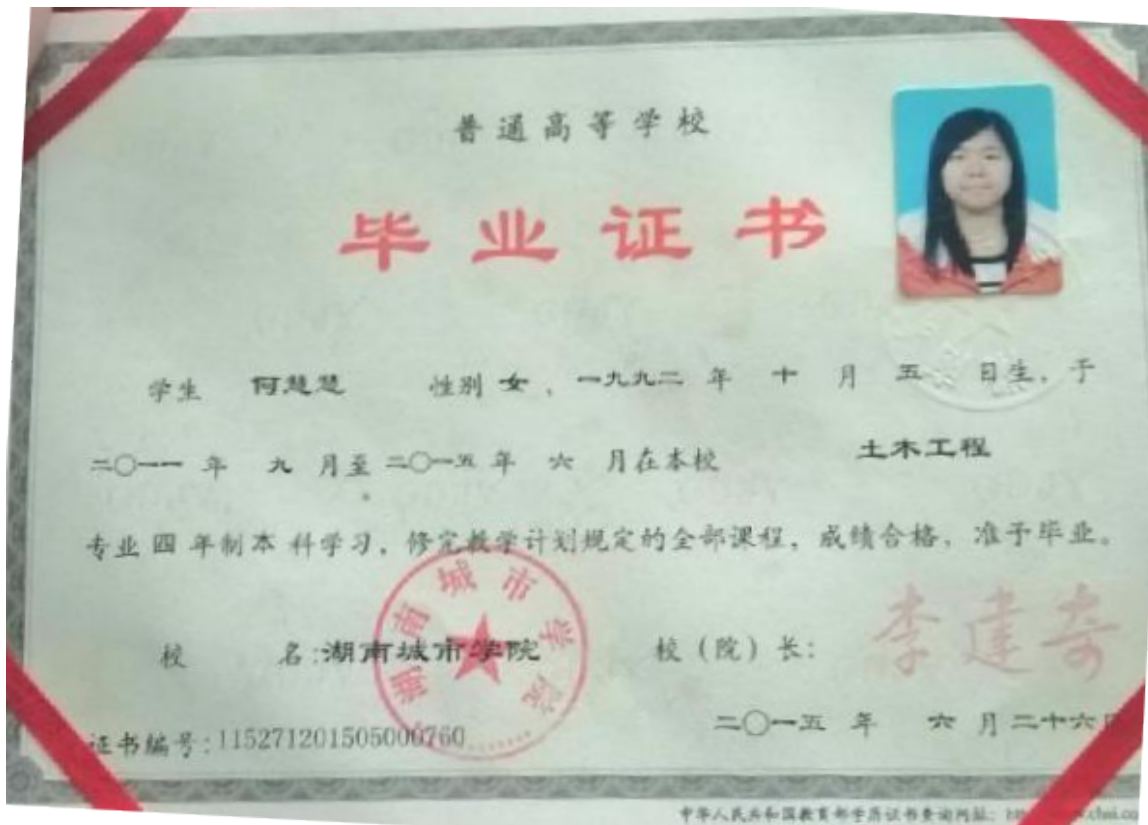 普通高等学校
毕业证书
学生 何慧慧 性别 女，一九九二 年 十 月 五 日生，于
二〇一一 年 九 月至 二〇一五 年 六 月在本校 土木工程
专业 四 年制 本 科学习，修完教学计划规定的全部课程，成绩合格，准予毕业。
湖南城市学院
校 名:湖南城市学院 校（院）长: 李建奇
二〇一五 年 六 月二十六日
证书编号:115271201505000760
中华人民共和国教育部学历证书查询网址: